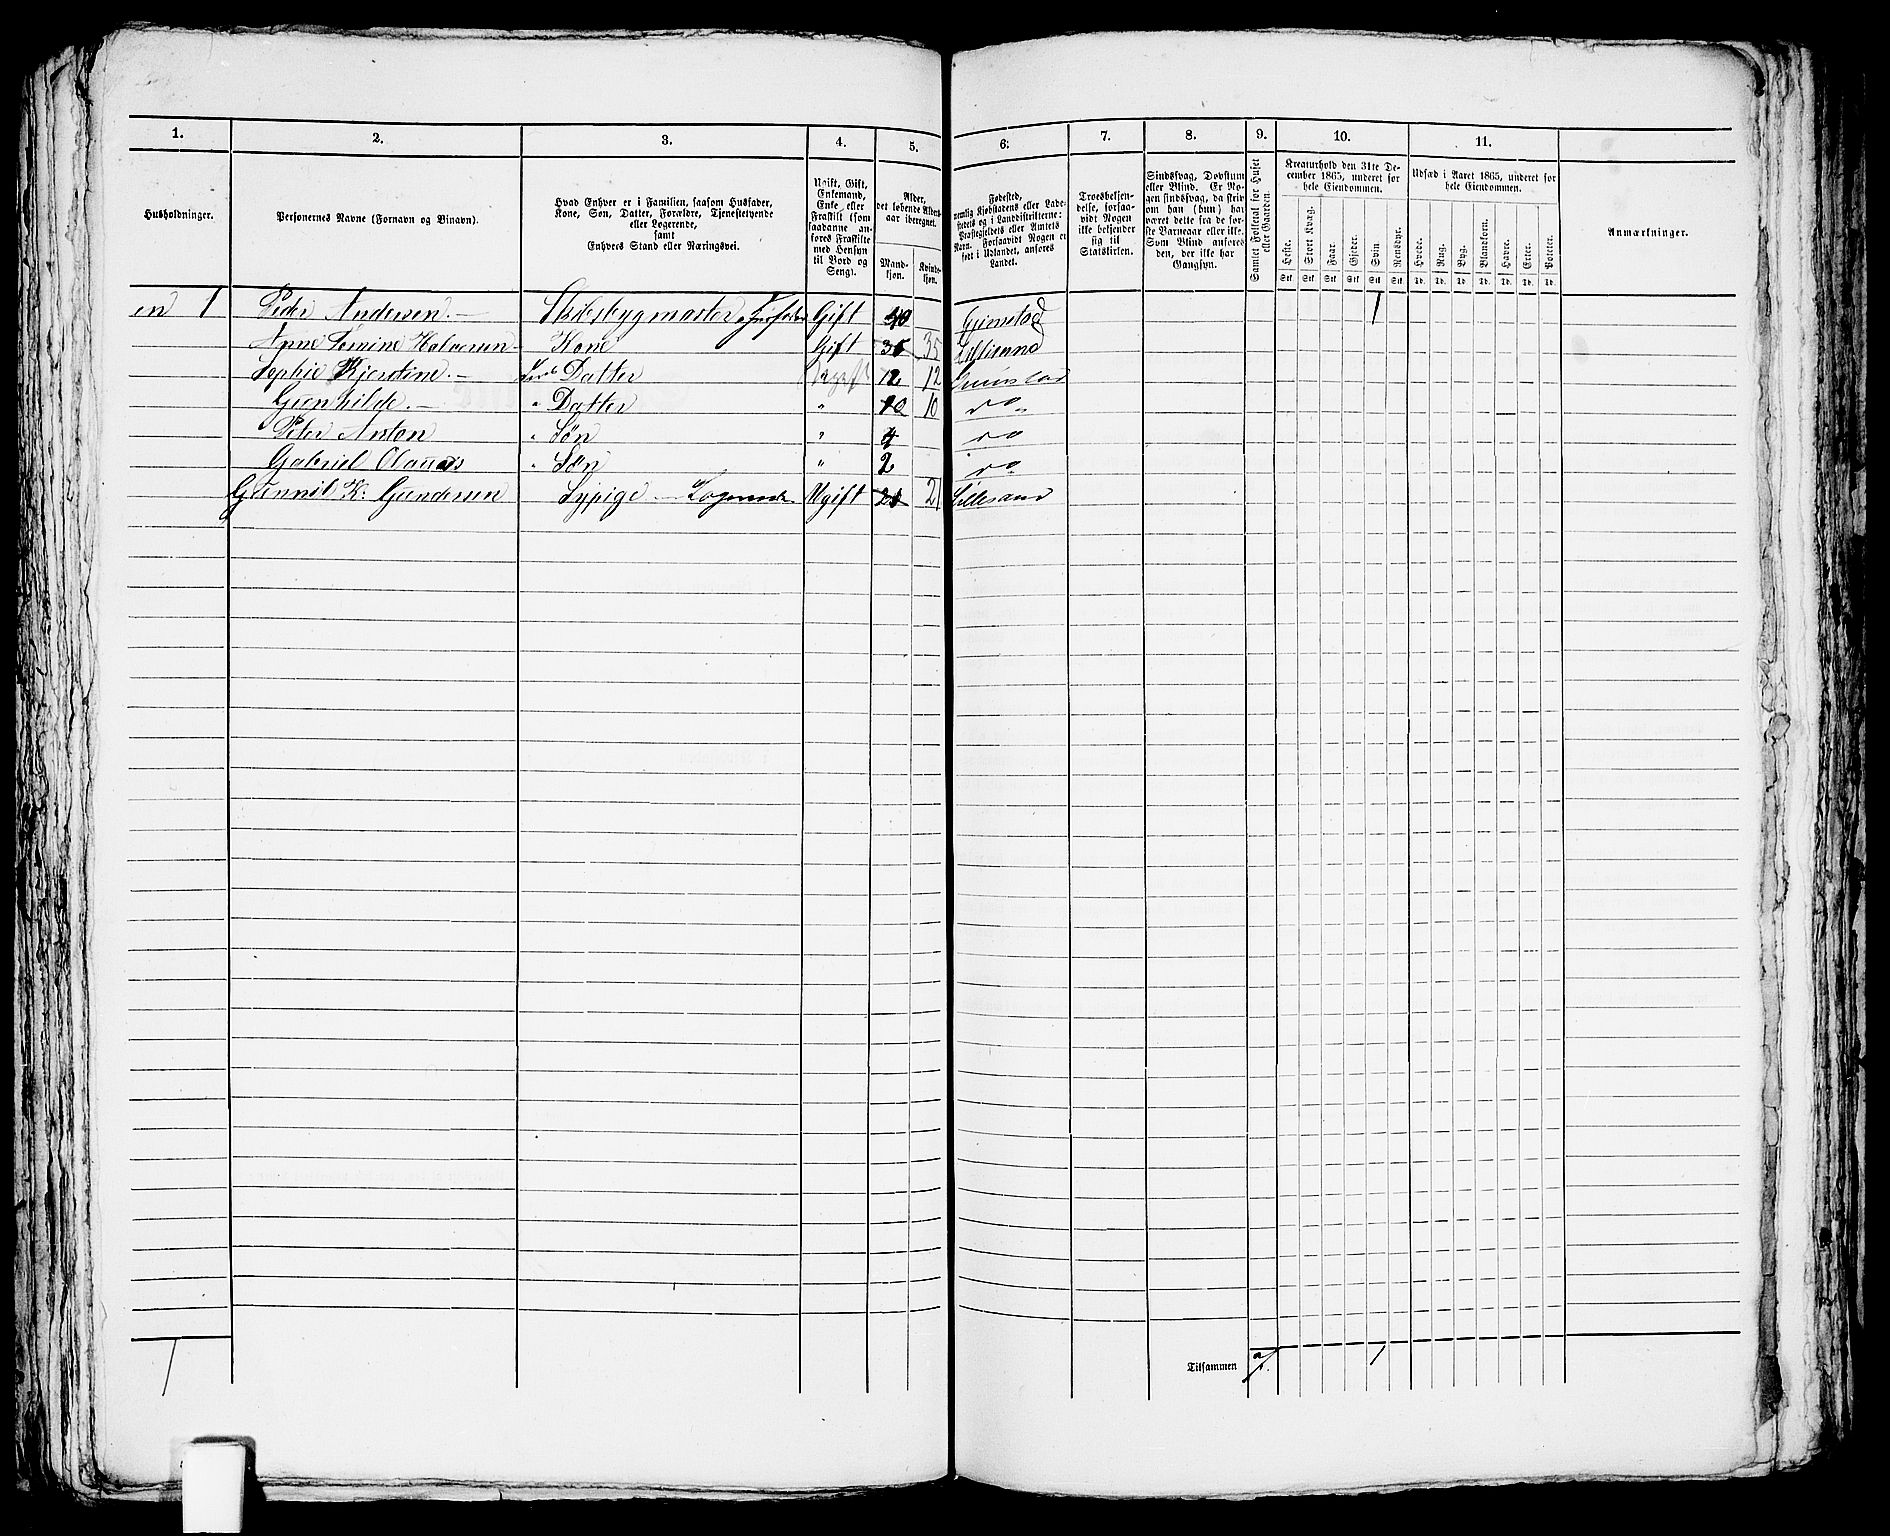 1. 2. 3. 4. 5. 6. 7. 8. 9. 10. 11.
Husholdninger.
Personernes Navne (Fornavn og Binavn).
Hvad Enhver er i Familien, saasom Husfader,
Kone, Søn, Datter, Forældre, Tjenestetyende
eller Logerende,
samt
Enhvers Stand eller Næringsvei.
Ugift, Gift,
Enkemand,
Enke eller
Fraskilt (som
saadanne an-
føres Fraskilte
med Hensyn
til Bord og
Seng).
Alder,
det løbende Alders-
aar iberegnet.
Mand-
kjøn.
Kvinde-
kjøn.
Fødested,
nemlig Kjøbstadens eller Lade-
stedets og i Landdistrikterne:
Præstegjeldets eller Amtets
Navn. Forsaavidt Nogen er
født i Udlandet, anføres
Landet.
Troesbekjen-
delse, forsaa-
vidt Nogen
ikke bekjender
sig til
Statskirken.
Sindssvag, Døvstum
eller Blind. Er No-
gen sindssvag, da skriv
om han (hun) har
været dette fra de før-
ste Barneaar eller ikke.
Som Blind anføres
den, der ikke har
Gangsyn.
Samlet Folketal for Huset
eller Gaarden.
Kreaturhold den 31te De-
cember 1865, underet for
hele Eiendommen.
Heste. Stort Kvæg. Faar. Gjeder. Sviin. Rensdyr.
Stk. Stk. Stk. Stk. Stk. Stk.
Udsæd i Aaret 1865, underet for
hele Eiendommen.
Hvede. Rug. Byg. Blandkorn. Havre. Erter. Poteter.
Td. Td. Td. Td. Td. Td. Td.
Anmærkninger.
en 1 Peder Andersen. Skibsbygmaster Husfader Gift 40 Grimstad 1
Anne Tomine Halversen Kone Gift 35 35 Lillesand
Sophie Kjerstine. Datter Ugift 12 12 Grimstad
Gunhilde. " Datter " 10 10 do
Peter Anton " Søn " 4 do
Gabriel Olaus " Søn " 2 do
Gunnil K. Gundersen Sypige Logerende Ugift 21 Lillesand
1 Tilsammen 7. 1